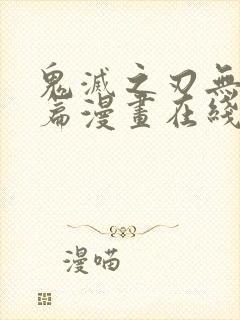 鬼滅之刃無
篇漫畫在綫
漫喵